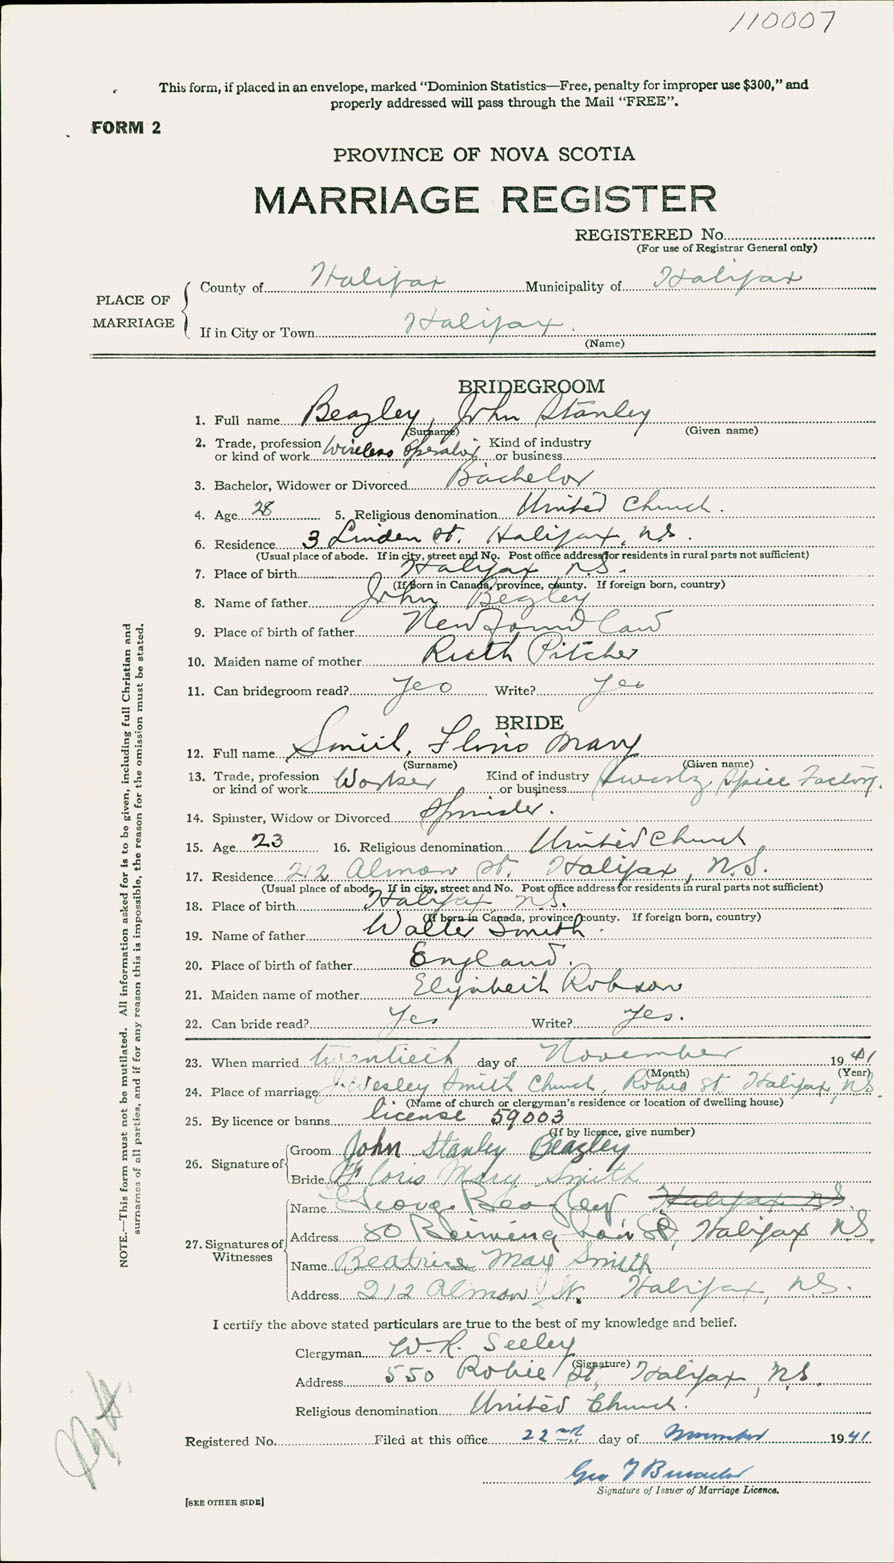 110007
This form, if placed in an envelope, marked “Dominion Statistics—Free, penalty for improper use $300,” and
properly addressed will pass through the Mail “FREE”.
FORM 2
PROVINCE OF NOVA SCOTIA
MARRIAGE REGISTER
REGISTERED No.
(For use of Registrar General only)
PLACE OF MARRIAGE
County of Halifax Municipality of Halifax
If in City or Town Halifax.
(Name)
BRIDEGROOM
1. Full name Beazley, John Stanley
(Surname) (Given name)
2. Trade, profession or kind of work Wireless Operator Kind of industry or business
3. Bachelor, Widower or Divorced Bachelor
4. Age 28 5. Religious denomination United Church.
6. Residence 3 Linden St. Halifax, N.S.
(Usual place of abode. If in city, street and No. Post office address for residents in rural parts not sufficient)
7. Place of birth Halifax N.S.
(If born in Canada, province, county. If foreign born, country)
8. Name of father John Beazley
9. Place of birth of father Newfoundland
10. Maiden name of mother Ruth Pitcher
11. Can bridegroom read? Yes Write? Yes
BRIDE
12. Full name Smith, Floris Mary
(Surname) (Given name)
13. Trade, profession or kind of work Worker Kind of industry or business Swartz Spice Factory.
14. Spinster, Widow or Divorced Spinster.
15. Age 23 16. Religious denomination United Church
17. Residence 212 Almon St. Halifax, N.S.
(Usual place of abode. If in city, street and No. Post office address for residents in rural parts not sufficient)
18. Place of birth Halifax N.S.
(If born in Canada, province, county. If foreign born, country)
19. Name of father Walter Smith.
20. Place of birth of father England.
21. Maiden name of mother Elizabeth Robson
22. Can bride read? Yes Write? Yes.
23. When married twentieth day of November 1941
(Month) (Year)
24. Place of marriage J. Wesley Smith Church, Robie St. Halifax, N.S.
(Name of church or clergyman's residence or location of dwelling house)
25. By licence or banns license 59003
(If by licence, give number)
26. Signature of
Groom John Stanley Beazley
Bride Floris Mary Smith
27. Signatures of Witnesses
Name George Beazley Halifax N.S.
Address 80 St, Halifax N.S.
Name Beatrice May Smith
Address 212 Almon St. Halifax, N.S.
I certify the above stated particulars are true to the best of my knowledge and belief.
Clergyman W. R. Seeley
(Signature)
Address 550 Robie St, Halifax, N.S.
Religious denomination United Church.
Registered No. Filed at this office 22nd day of November 1941
Geo
Signature of Issuer of Marriage Licence.
[SEE OTHER SIDE]
NOTE.—This form must not be mutilated. All information asked for is to be given, including full Christian and
surnames of all parties, and if for any reason this is impossible, the reason for the omission must be stated.